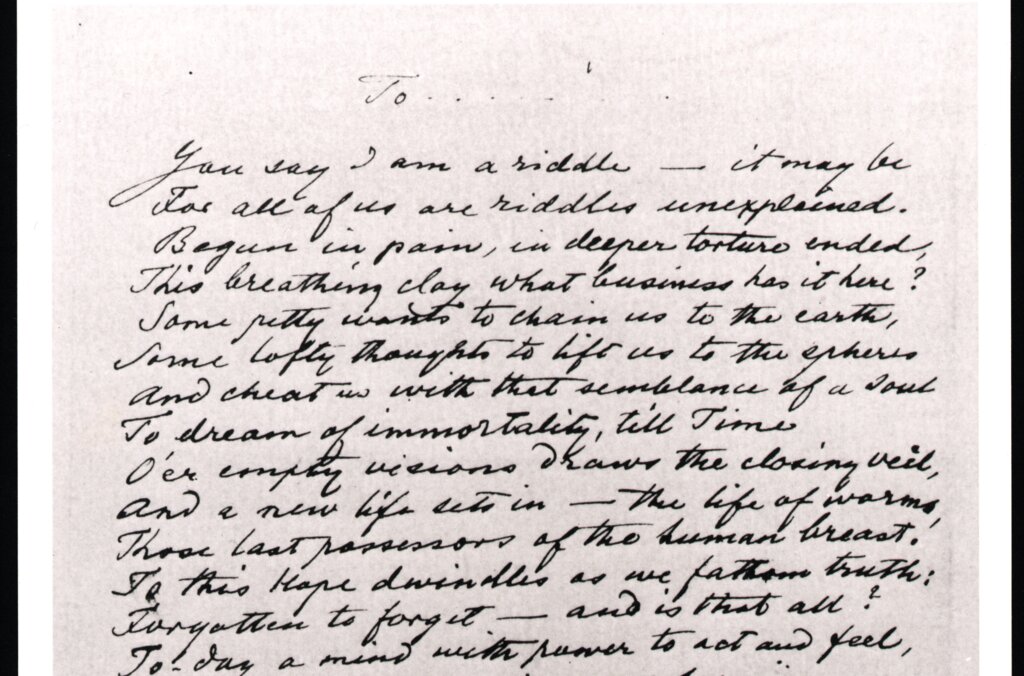 To . . . . . .
You say I am a riddle — it may be
For all of us are riddles unexplained.
Begun in pain, in deeper torture ended,
This breathing clay what business has it here?
Some petty wants to chain us to the earth,
Some lofty thoughts to lift us to the spheres
And cheat us with that semblance of a soul
To dream of immortality, till Time
O'er empty visions draws the closing veil,
And a new life sets in — the life of worms,
Those last possessors of the human breast.
To this Hope dwindles as we fathom truth:
Forgotten to forget — and is that all?
To-day a mind with power to act and feel,